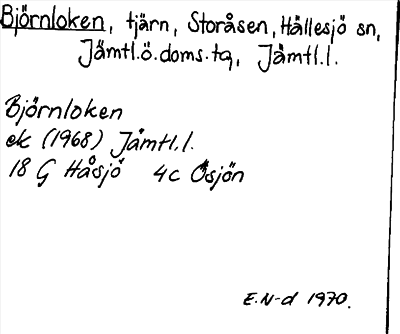 Björnloken, tjärn, Storåsen, Hällesjö sn,
Jämtl.ö.doms.tg, Jämtl.l.
Björnloken
ek (1968) Jämtl.l.
18 G Håsjö 4c Ösjön
E.N-d 1970.